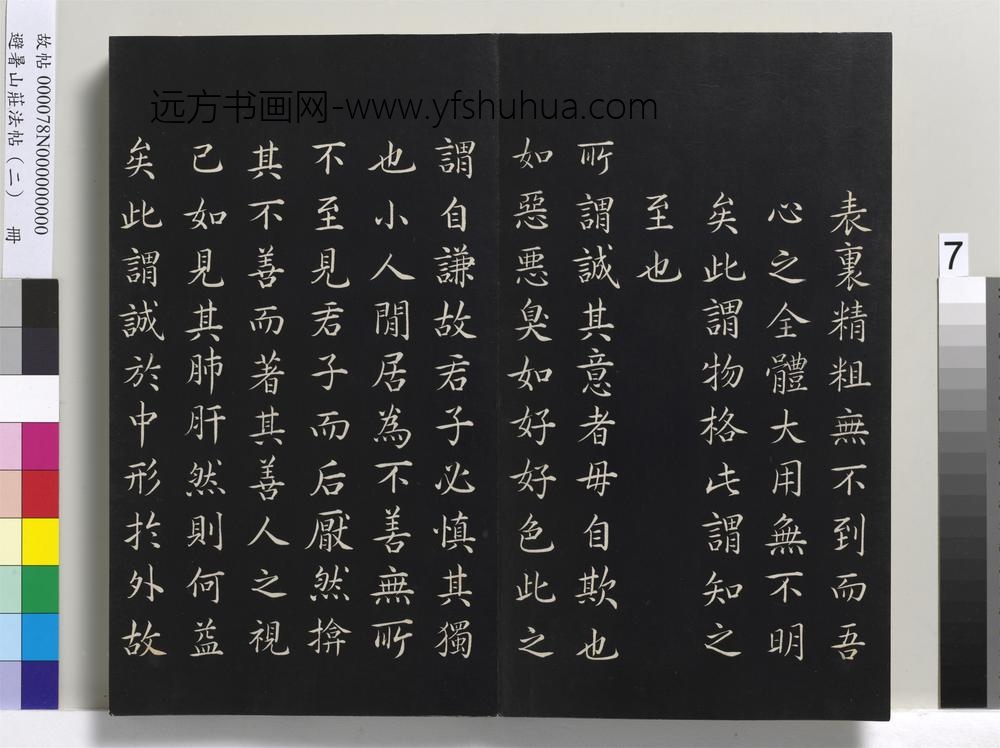 表裏精粗無不到而吾
心之全體大用無不明
矣此謂物格此謂知之
至也
所謂誠其意者毋自欺也
如惡惡臭如好好色此之
謂自謙故君子必慎其獨
也小人閒居為不善無所
不至見君子而后厭然揜
其不善而著其善人之視
己如見其肺肝然則何益
矣此謂誠於中形於外故
远方书画网-www.yfshuhua.com
故帖 000078N000000000
避暑山莊法帖（二） 冊
7